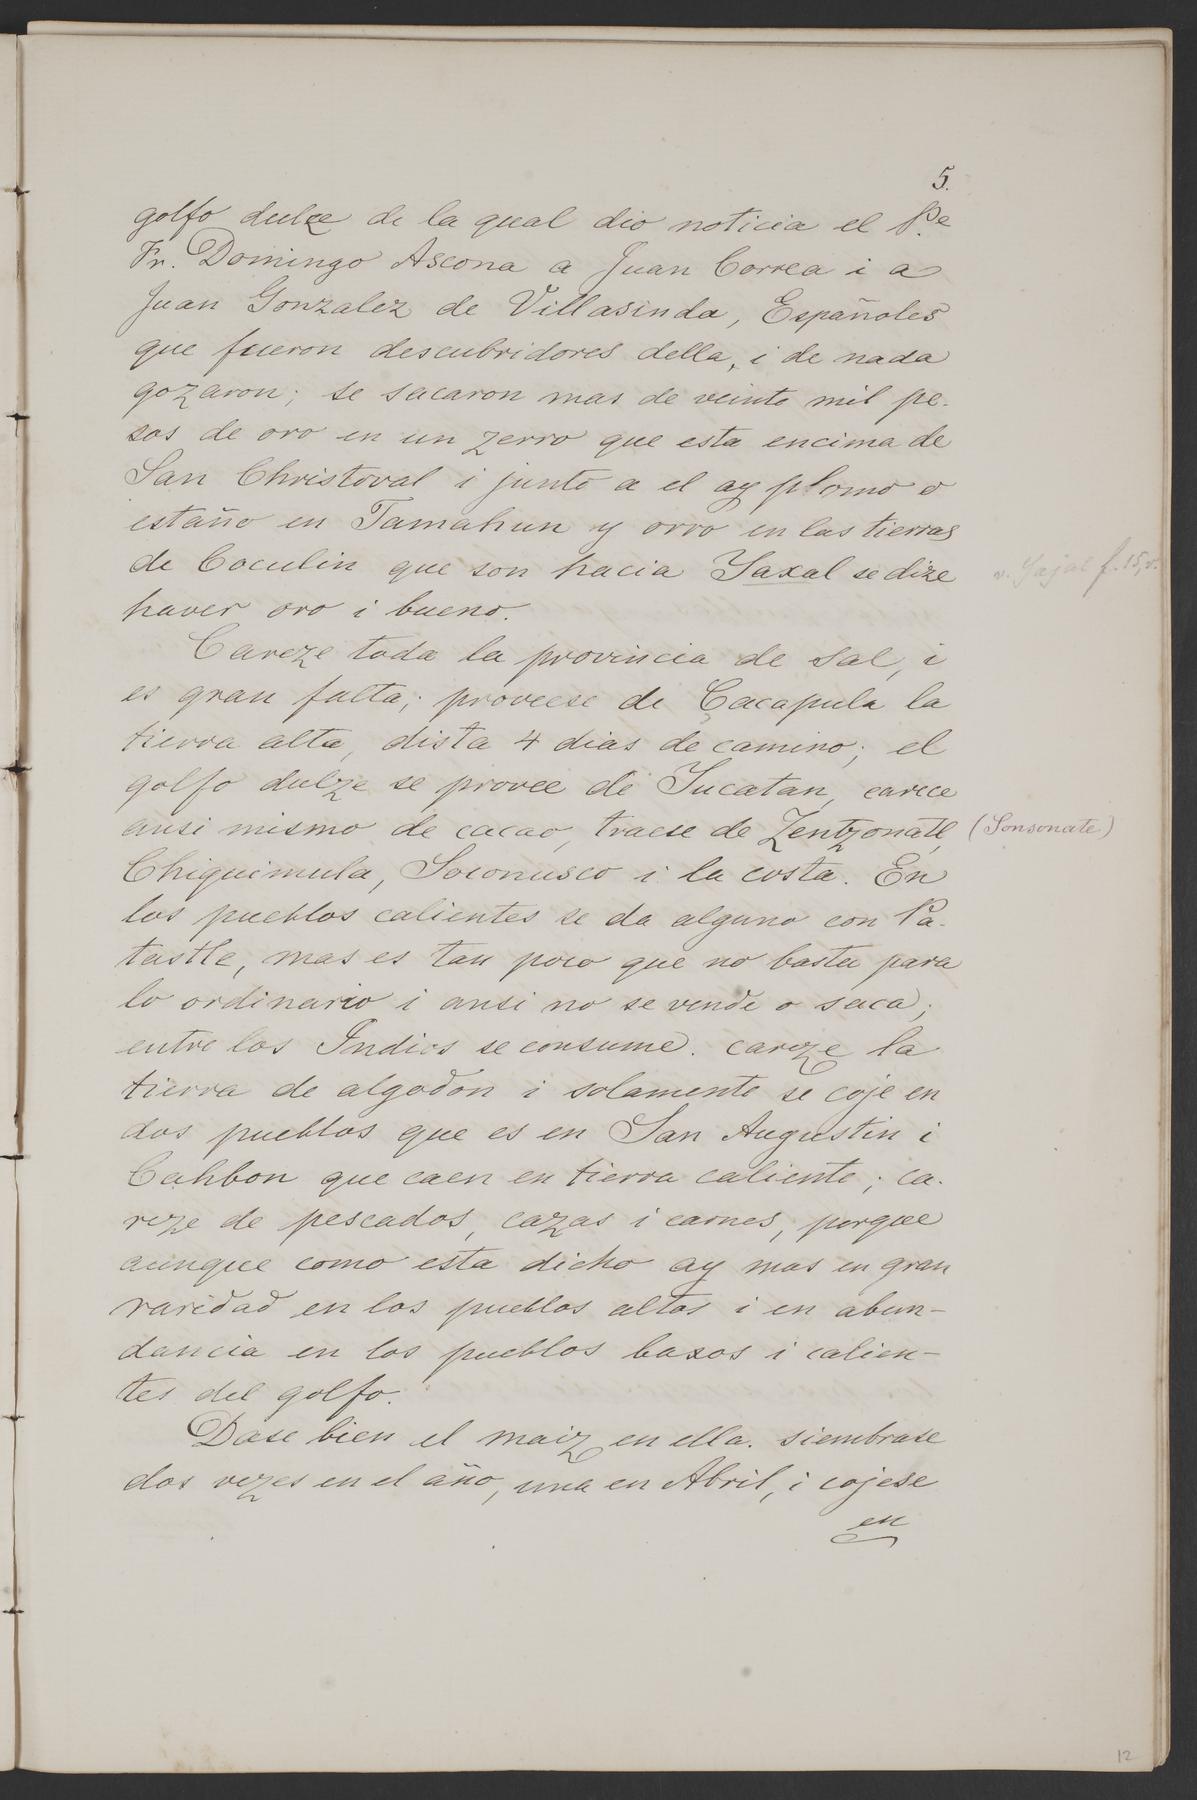 5.
golfo dulze de la qual dio noticia el P.e
Fr. Domingo Ascona a Juan Correa i a
Juan Gonzalez de Villasinda, Españoles
que fueron descubridores della, i de nada
gozaron; se sacaron mas de veinte mil pe-
sos de oro en un zerro que esta encima de
San Christoval i junto a el ay plomo o
estaño en Tamahun y orro en las tierras
de Coculin que son hacia Yaxal se dize
v. Yajal f. 15, v.
haver oro i bueno.
Careze toda la provincia de sal, i
es gran falta; proveese de Çacapula la
tierra alta, dista 4 dias de camino; el
golfo dulze se provee de Yucatan, carece
ansi mismo de cacao, traese de Zentzonatl,
(Sonsonate)
Chiquimula, Soconusco i la costa. En
los pueblos calientes se da alguno con Pa-
tastle, mas es tan poco que no basta para
lo ordinario i ansi no se vende o saca;
entre los Indios se consume. careze la
tierra de algodon i solamente se coje en
dos pueblos que es en San Augustin i
Cahbon que caen en tierra caliente; ca-
reze de pescados, cazas i carnes, porque
aunque como esta dicho ay mas en gran
raredad en los pueblos altos i en abun-
dancia en los pueblos baxos i calien-
tes del golfo.
Dase bien el maiz en ella. siembrase
dos vezes en el año, una en Abril, i cojese
en
12